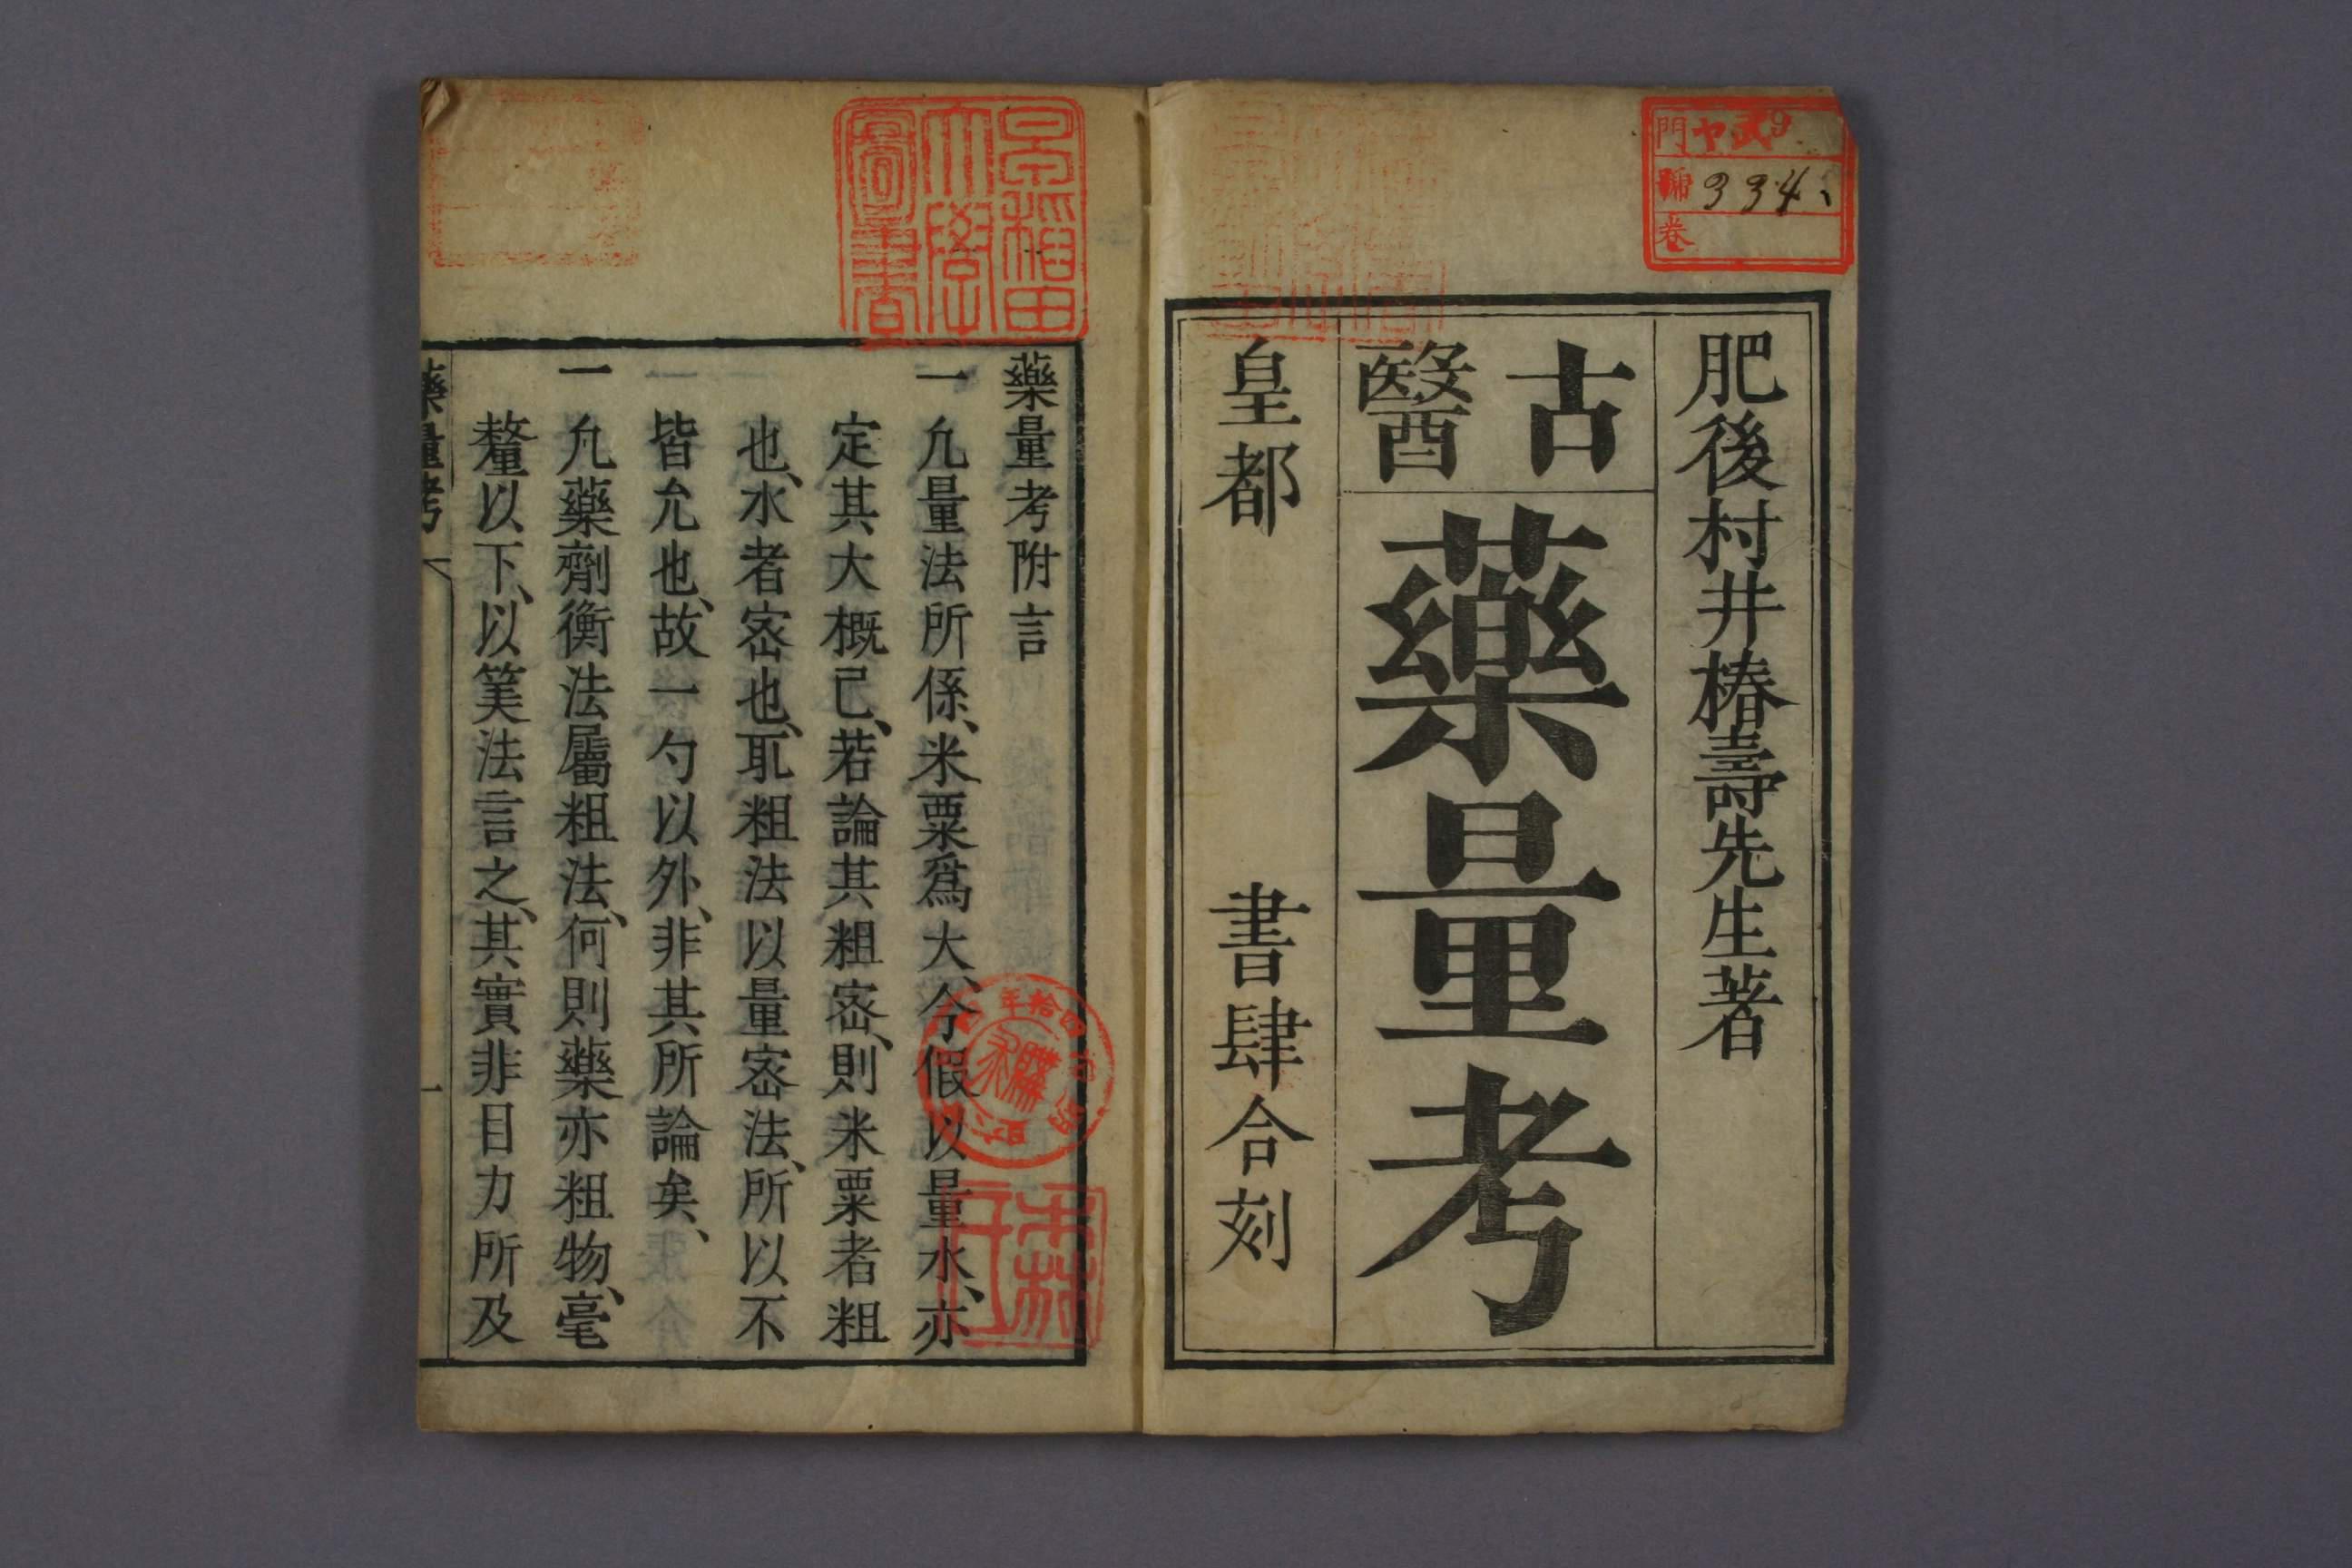 門 ヤ 9
號 334
卷
肥後村井椿壽先生著
古醫
藥量考
皇都 書肆合刻
早稻田
大學
圖書
藥量考附言
一凢量法所係、米粟爲大、今假以量水、亦
定其大概已、若論其粗宻、則米粟者粗
也、水者宻也、取粗法以量宻法、所以不
皆允也、故一勺以外、非其所論矣、
一凢藥劑衡法屬粗法、何則藥亦粗物、毫
釐以下、以筭法言之、其實非目力所及
藥量考
一